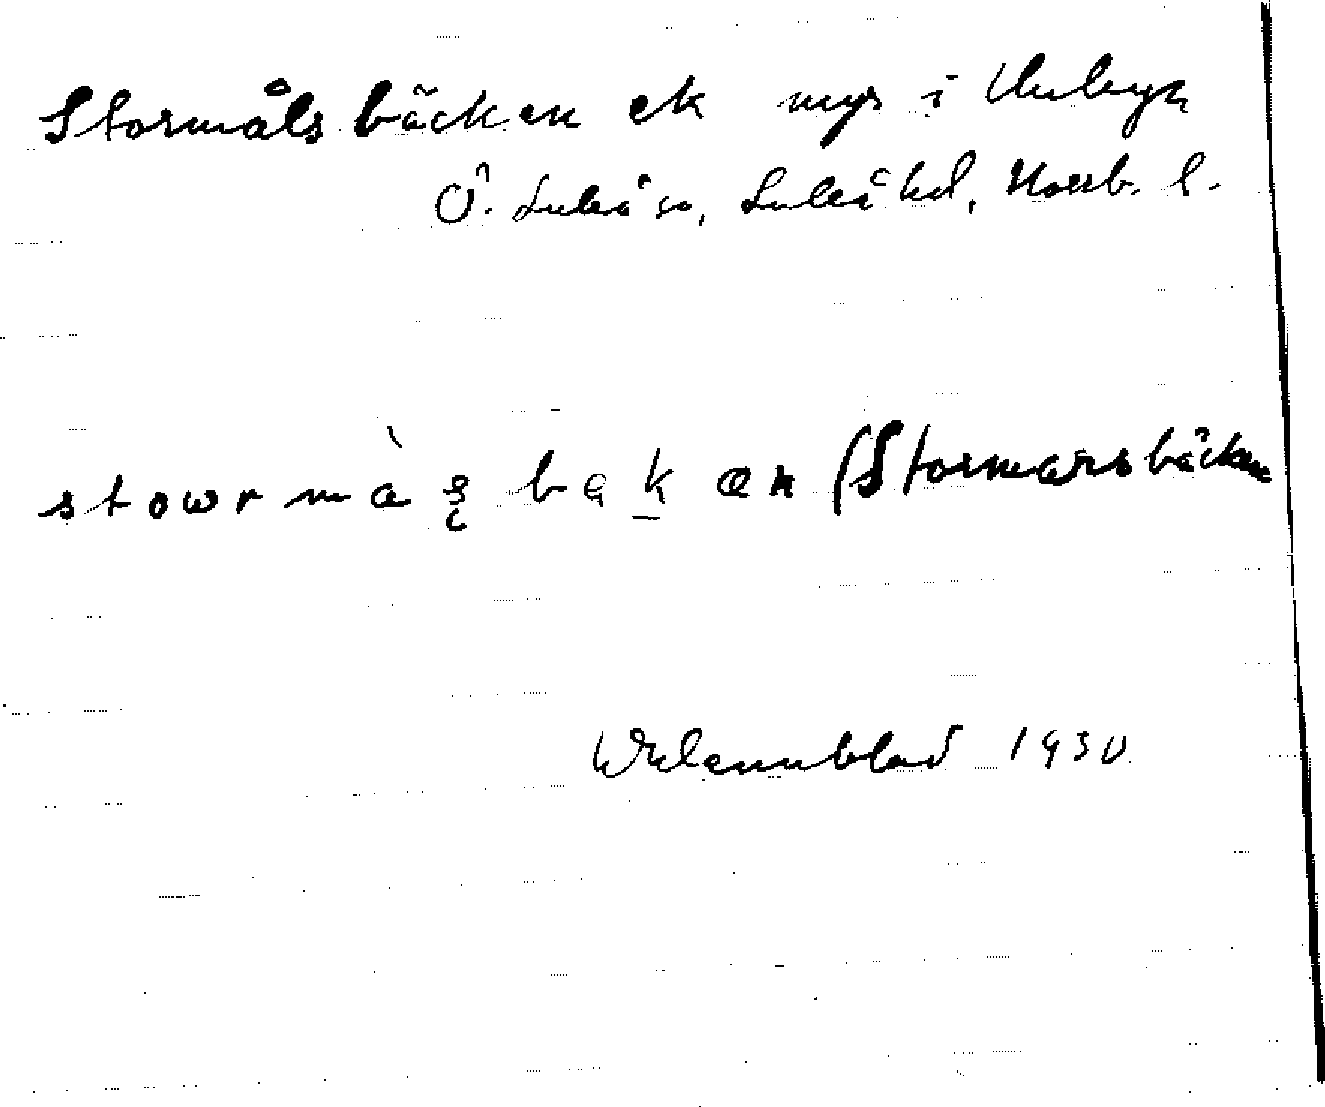 Stormåls bäcken ek myr i Unbyn
Ö. Luleå sn, Luleå hd, Norrb. l.
stowrmàʂ bęḵ æn (Stormarsbäcken
Wklennblad 1930